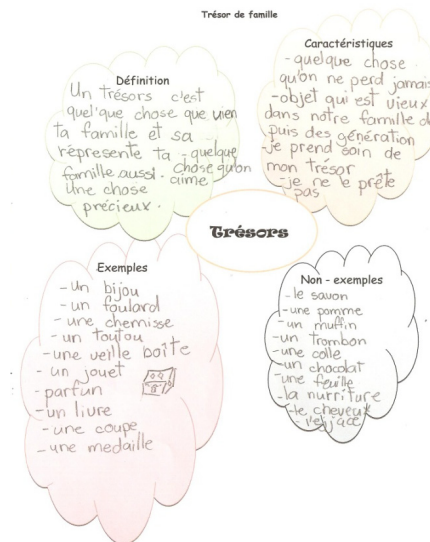 Trésor de famille
Définition
Un trésors c'est
quel'que chose que vien
ta famille et sa
réprésente ta
famille aussi.
Une chose
précieux.
-quelque
chose qu'on
aime
Caractéristiques
-quelque chose
qu'on ne perd jamais
-objet qui est vieux
dans notre famille de
puis des génération
-je prend soin de
mon trésor
-je ne le prête
pas
Trésors
Exemples
-un bijou
-un foulard
-une chemisse
-un toutou
-une veille boîte
-un jouet
-parfun
-un livre
-une coupe
-une medaille
Non - exemples
-le savon
-une pomme
-un muffin
-un trombon
-une colle
-un chocolat
-une feuille
-la nurriture
-le cheveux